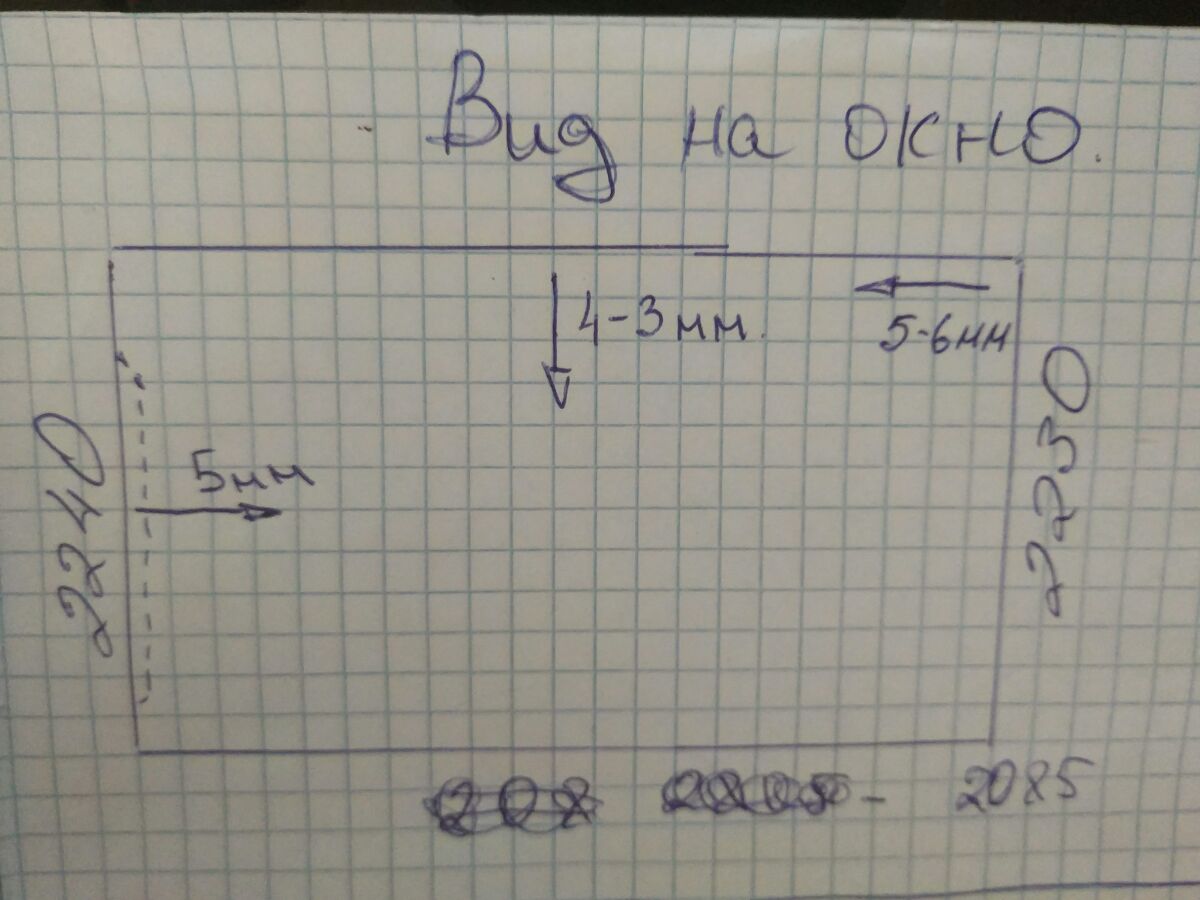 Вид на окно.
4-3мм.
5-6мм
5мм
2240
2230
- 2085